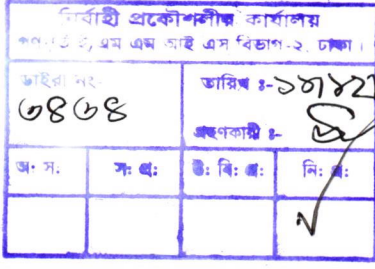 নির্বাহী প্রকৌশলীর কার্যালয়
এম এম আই এস বিভাগ-২, ঢাকা।
ডাইরী নং- তারিখ ঃ-
৩৪৩৪
গ্রহণকারী ঃ-
অ: স: স: প্র: উ: বি: প্র: নি: প্র: